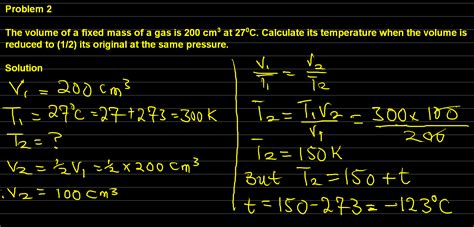 Problem 2
The volume of a fixed mass of a gas is 200 cm³ at 27⁰C. Calculate its temperature when the volume is
reduced to (1/2) its original at the same pressure.
Solution
V₁ = 200 cm³
T₁ = 27°C = 27 + 273 = 300 K
T₂ = ?
V₂ = ½ V₁ = ½ × 200 cm³
V₂ = 100 cm³
V₁/T₁ = V₂/T₂
T₂ = T₁V₂/V₁ = 300 × 100/200
T₂ = 150 K
But T₂ = 150 + t
t = 150 - 273 = -123°C